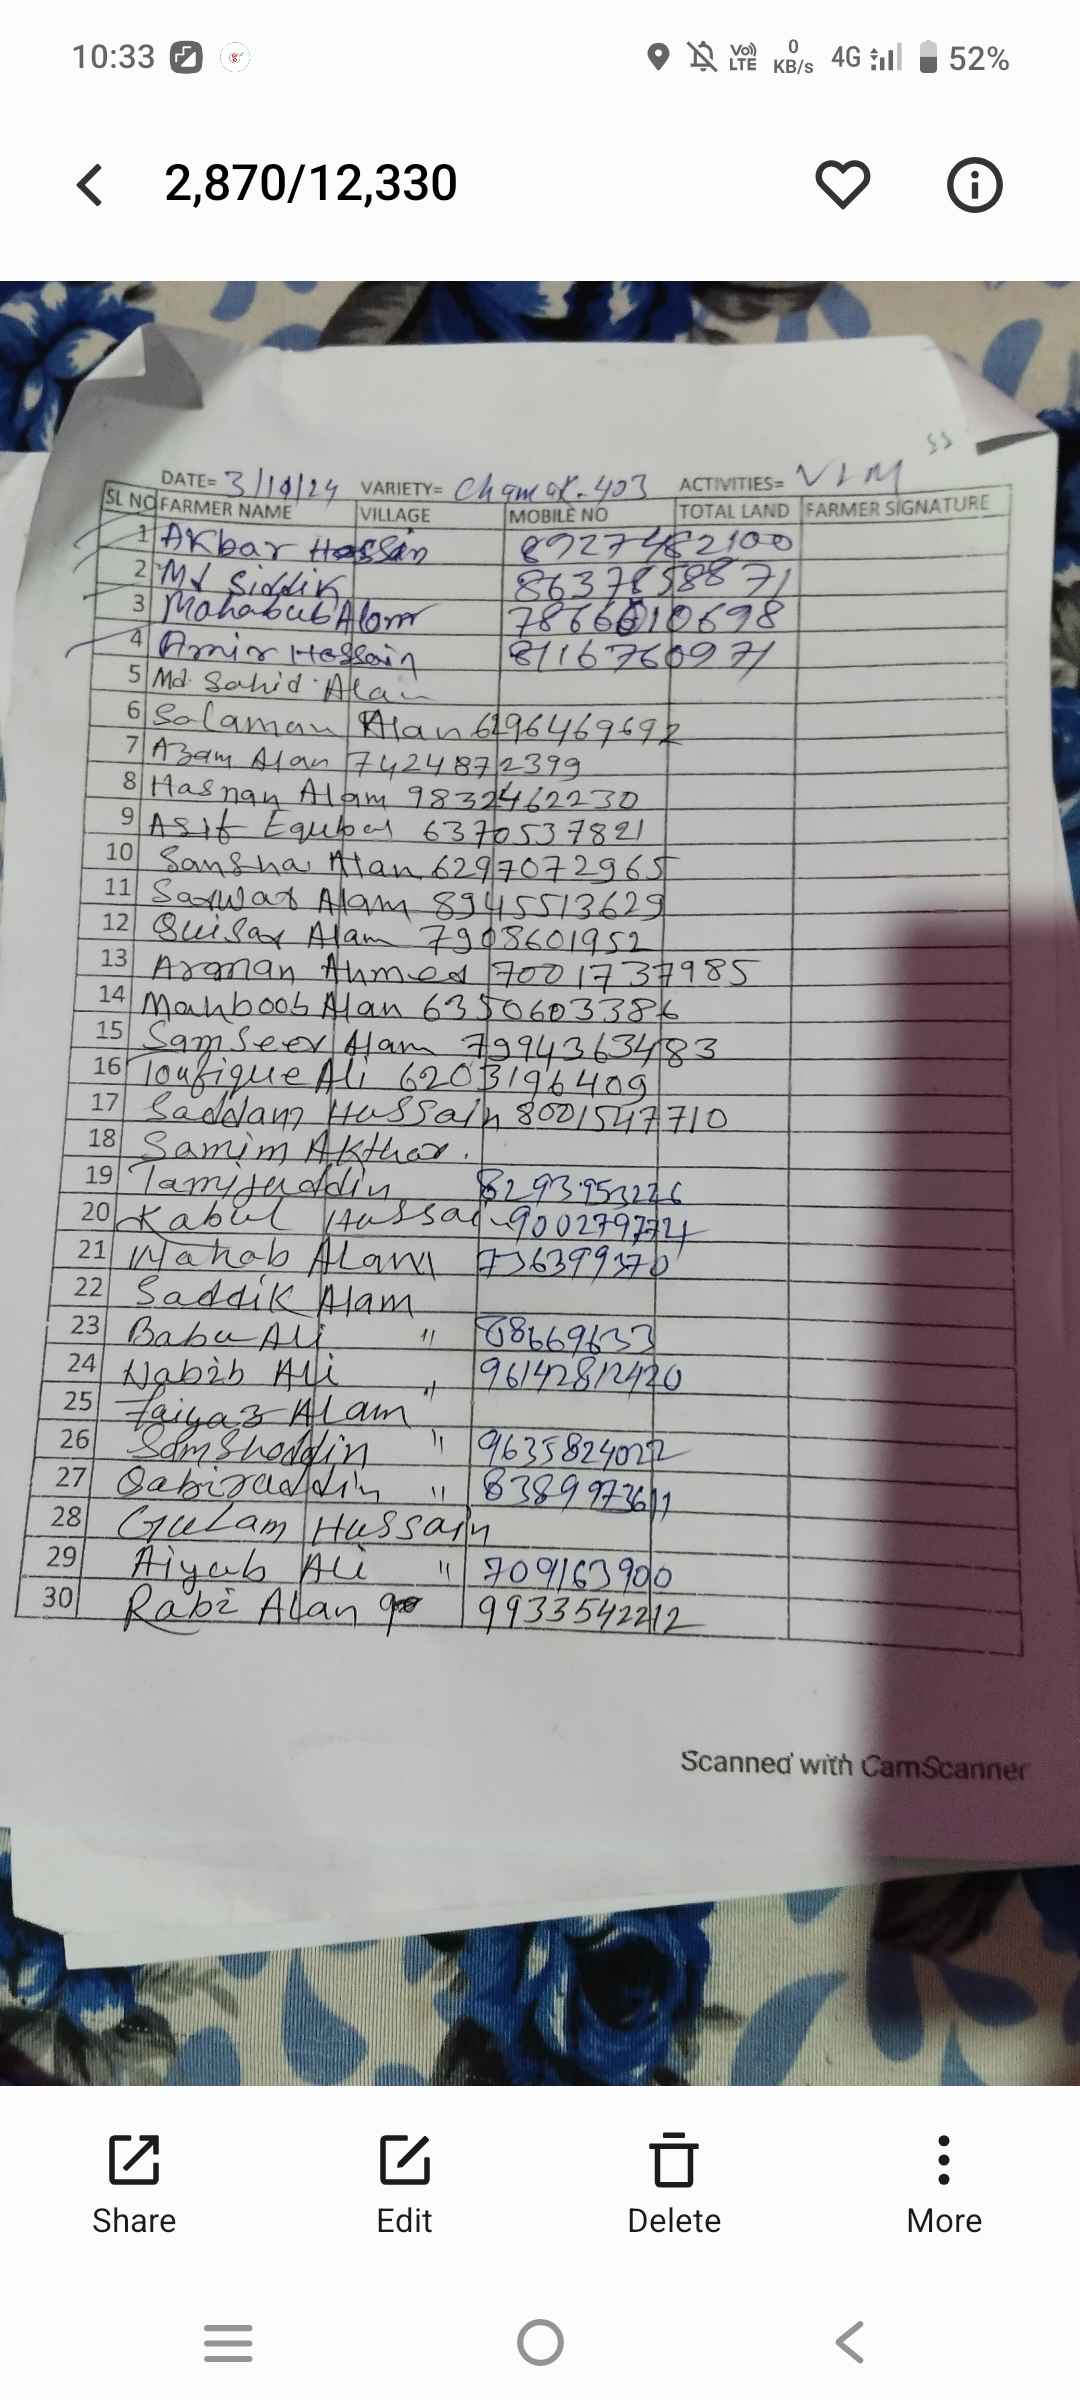 10:33
Vo)) LTE 0 KB/s 4G 52%
2,870/12,330
SS
DATE= 3/10/24 VARIETY= Chamak-403 ACTIVITIES= VLM
SL NO FARMER NAME VILLAGE MOBILE NO TOTAL LAND FARMER SIGNATURE
1 Akbar Hossin 8927482100
2 Md Siddik 8637858871
3 Mahabub Alom 7866010698
4 Amir Hossain 8116760971
5 Md. Sahid Alan
6 Salaman Alan 6296469692
7 Azam Alan 7424872399
8 Hasnan Alam 9832462230
9 Asif Equbal 6370537821
10 Sansha Alan 6297072965
11 Sarwar Alam 8945513629
12 Quisar Alam 7908601952
13 Arman Ahmed 7001737985
14 Mahboob Alan 6350603386
15 Samseer Alam 7994363483
16 Toufique Ali 6203196409
17 Saddam Hussain 8001547710
18 Samim Akthar.
19 Tamijuddin 8293953226
20 Kabul Hussain 9002797724
21 Wahab Alam 736399370
22 Saddik Alam
23 Babu Ali " 88669633
24 Nabib Ali " 9614281420
25 Faiyaz Alam
26 Samshoddin " 9635824022
27 Qabiruddin " 8389973611
28 Gulam Hussain
29 Aiyub Ali " 709163900
30 Rabi Alan 9933542212
Scanned with CamScanner
Share Edit Delete More